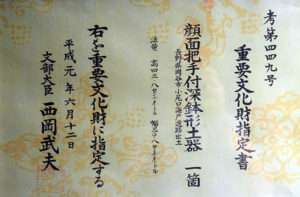 考第四四九号
重要文化財指定書
顔面把手付深鉢形土器 一箇
長野県岡谷市小尾口海戸遺跡出土
法量 高四三・八センチメートル 幅三〇・八センチメートル
右を重要文化財に指定する
平成元年六月十二日
文部大臣 西岡武夫